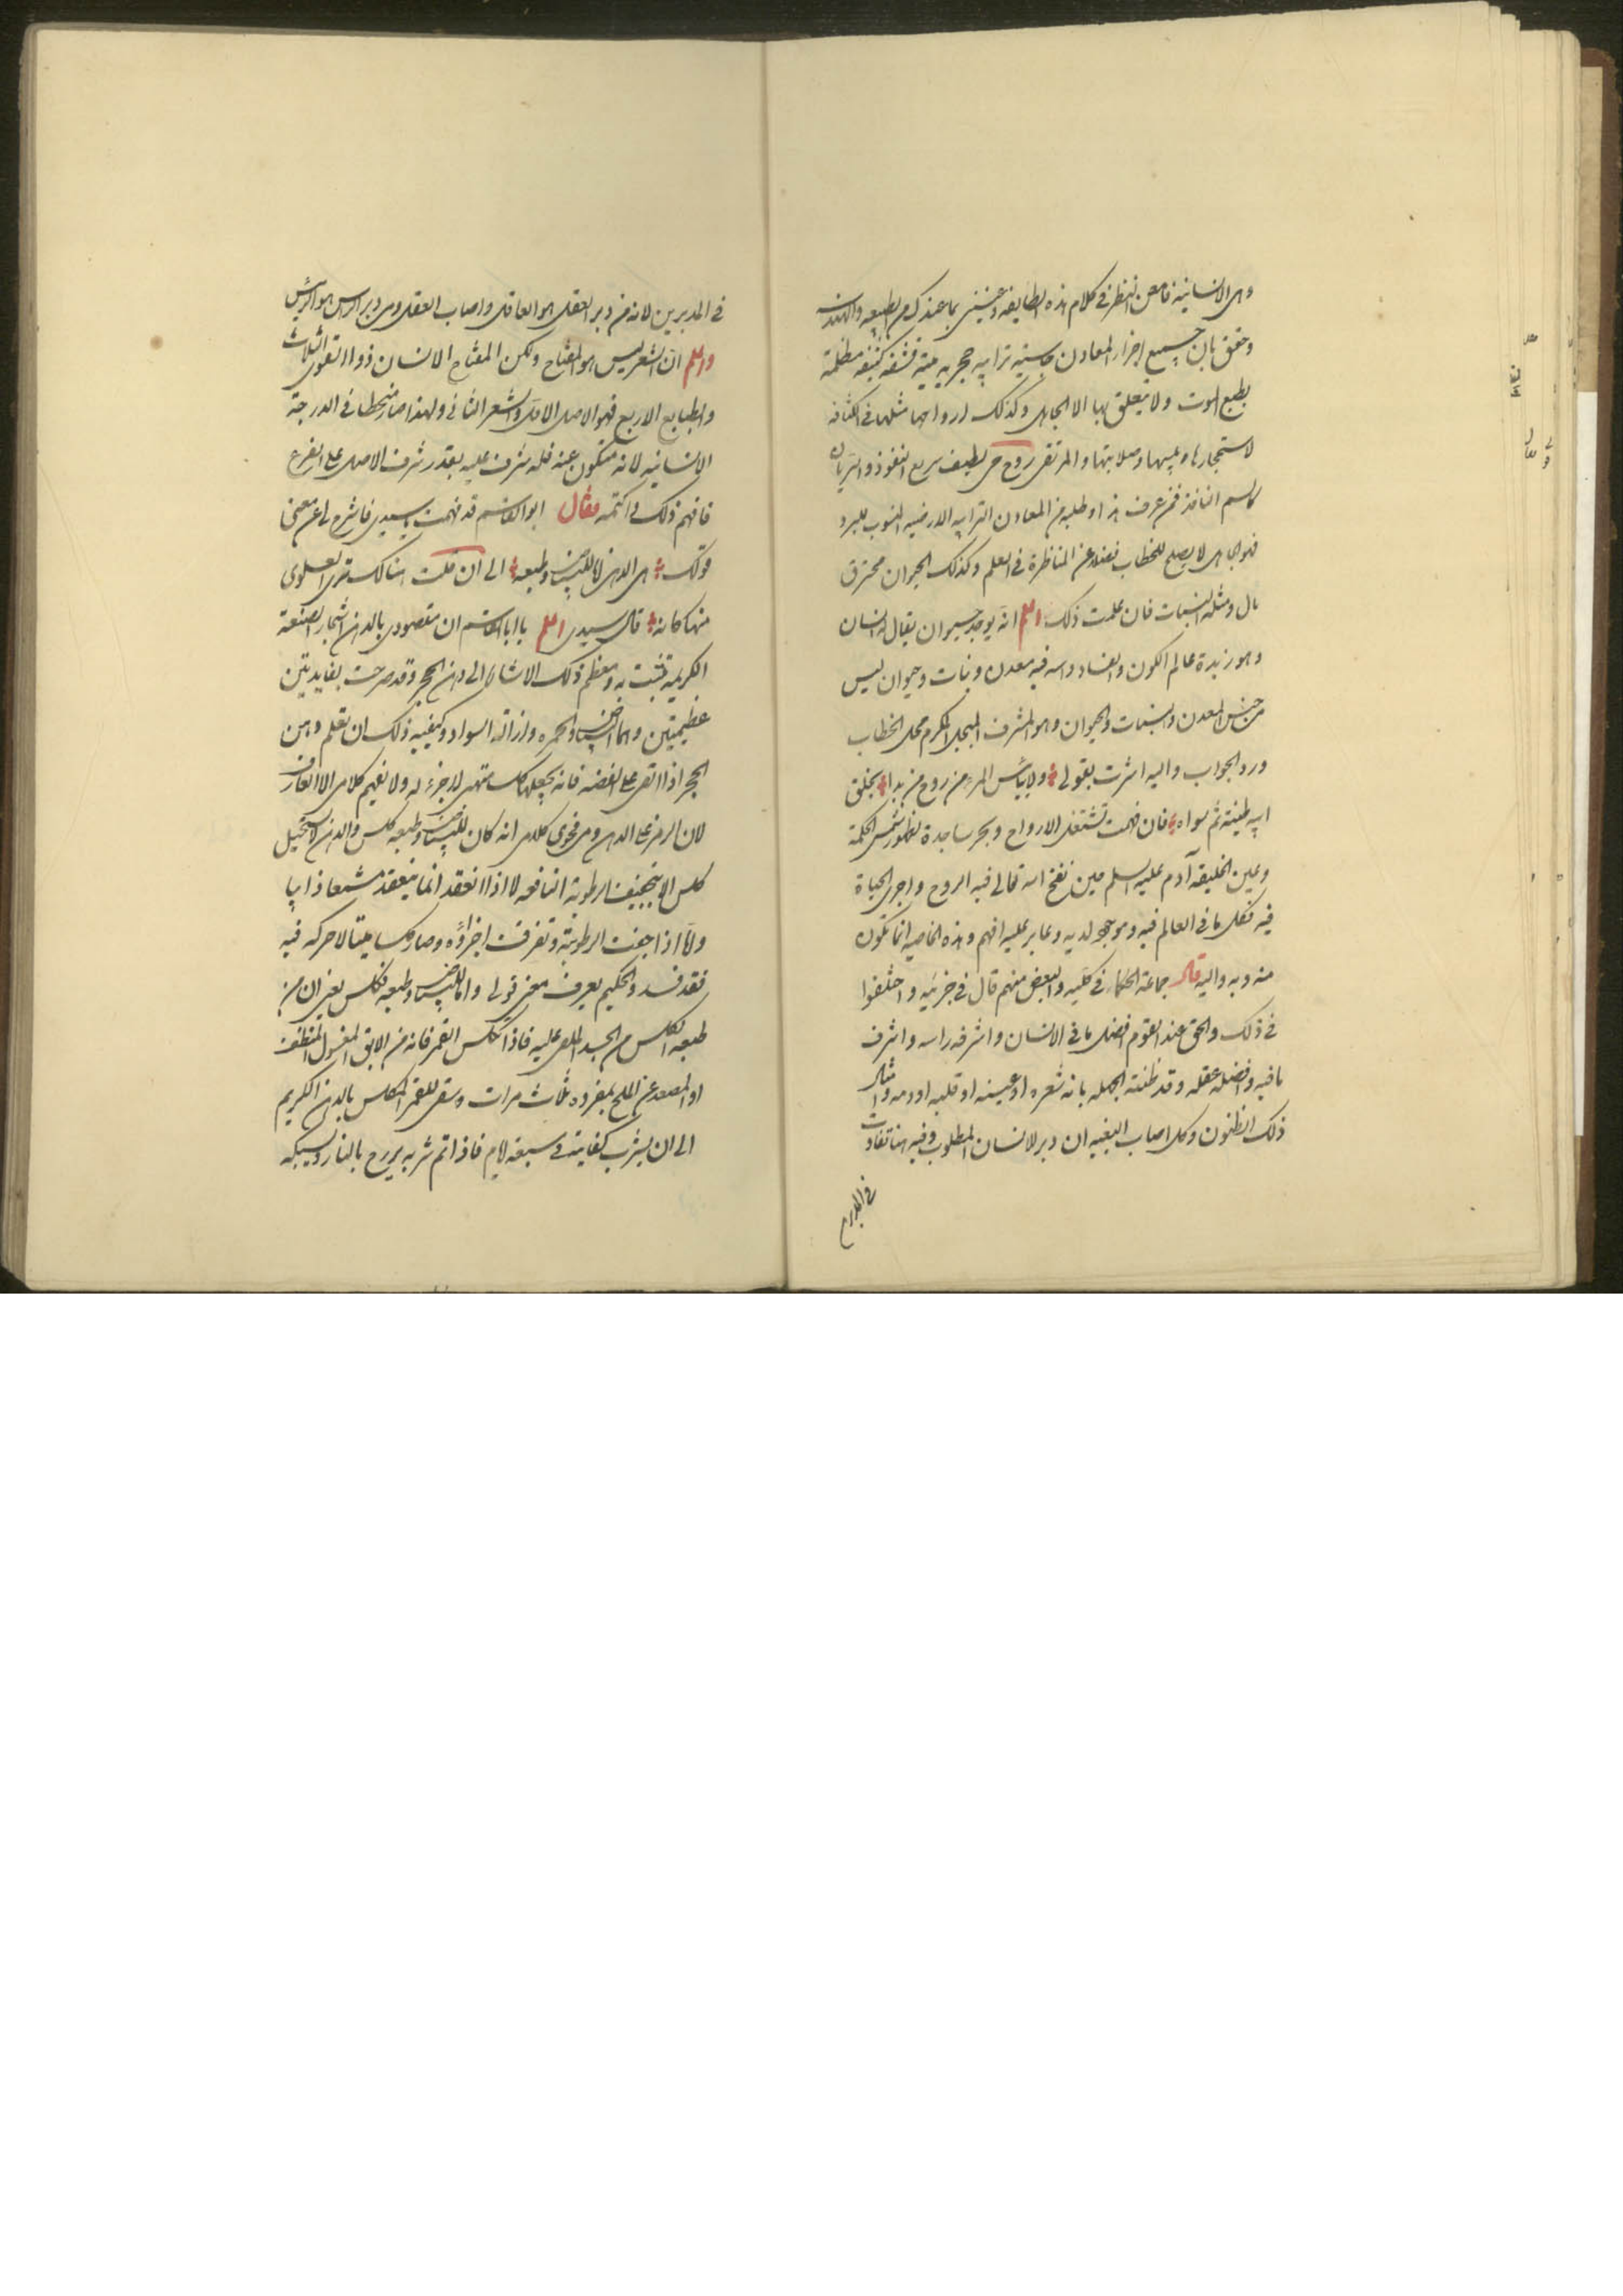 وهى الانسانيه فامعن النظر فى كلام هذه الطايفه وعينى بما عندك من الطبيعه والهندسه
وحقق بان جميع اجزاء المعادن جاسيه ترابيه حجريه ميتة قشفه كثيفه مظلمة
بطبع الموت ولا يتعلق بها الا الجاهل وكذلك ارواحها مثلها فى الكثافه
لاستحجارها ويبسها وصلابتها والمرتقى روح حى لطيف سريع النفوذ والسريان
كالسم النافذ فمن عرف هذا وطلبه من المعادن الترابيه الارضيه المنسوب للبرد
فهو الجاهل لا يصلح للخطاب فضلا عن المناظرة فى العلم وكذلك الحيوان محترق
بال ومثله النبات فان علمت ذلك اعلم انه يوجد حيوان يقال له انسان
وهو زبدة عالم الكون والفساد واسه فيه معدن ونبات وحيوان ليس
من جنس المعدن والنبات والحيوان وهو المشرف المبجل المكرم محل الخطاب
ورد الجواب واليه اشرت بقولى ولا ييأس المرء من روح من بدا بخلق
ابيه طينة ثم سواه فان فهمت تشتغل الارواح وبحر ساجدة لظهور شمس الحكمة
وعين الخليقه آدم عليه السلم حين نفخ الله تعالى فيه الروح واجرى الحياة
فيه فكل ما فى العالم فيه وموجود لديه وعابر عليه افهم وهذه الخاصيه انما تكون
منه وبه واليه قال جماعة الحكماء فى كليه والبعض منهم قال فى جزئيه واختلفوا
فى ذلك والحق عند القوم افضل ما فى الانسان واشرفه راسه واشرف
ما فيه وافضله عقله وقد ظنته الجهله بانه شعره او عينه او قلبه او دمه وامثال
ذلك الظنون وكل اصاب البغيه ان دبر الانسان المطلوب وفيه هنا تفاوت
فى المدبرين
فى المدبرين لانه من دبر العقل هو العاقل واصاب العقل ومن دبر الراس هو الرئيس
واعلم ان الشعر ليس هو المفتاح ولكن المفتاح الانسان ذو القوى الثلاث
والطبايع الاربع فهو الاصل الاول والشعر الثانى ولهذا صار منحطا فى الدرجة
الانسانيه لانه متكون عنه فله شرف عليه بقدر شرف الاصل على الفرع
فافهم ذلك واكتمه فقال ابو القاسم قد فهمت يا سيدى فاشرح لى عن معنى
قولك هى الدهن لا للبياض وطبعه الى ان قلت هنالك ترى العلوى
منها كانه قال سيدى اعلم يا ابا القاسم ان مقصودى بالدهن اشجار الصنعة
الكريمه تنبت به ومعظم ذلك الاشارة الى دهن الحجر وقد صرحت بفايدتين
عظيمتين وهما البياض والحمره وازالة السواد وكيفيه ذلك ان تعلم دهن
الحجر اذا القى على الفضه فانه يجعلها كلسا متهى لا جزء له ولا يفهم كلامى الا العارف
لان الرمز على الدهن ومن فحوى كلامى انه كان للبياض وطبعه كلس والدهن لا يستحيل
كلس الا بتجفيف الرطوبة النافعه لا اذا انعقد انما ينعقد مشمعا ذايبا
ولما اذا جفت الرطوبة وتفرقت اجزاؤه وصار كلسا ميتا لا حركه فيه
فقد فسد والحكيم يعرف معنى قولى واما للبياض وطبعه فكلس يعنى ان من
طبعه الكلس من الجسد الملقى عليه فاذا تكلس القمر فانه من الابق المغسول المنظف
او المصعد عن الملح بمفرده ثلاث مرات وسقى للقمر المكلس بالدهن الكريم
الى ان يشرب كفايته فى سبعة ايام فاذا تم شربه يروح بالنار ويسبكه